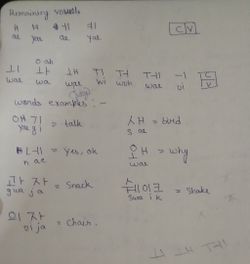 Remaining vowels
ㅐ ㅒ ㅔ ㅖ CV
ae yae ae yae
ㅚ ㅘ ㅙ ㅟ ㅝ ㅞ ㅢ C V
wae wa wae wi woh wae ui
words examples :-
얘기 = talk
yae gi
새 = bird
s ae
네 = Yes, ok
n ae
왜 = why
wae
과자 = Snack
gwa ja
쉐이크 = Shake
swa i k
의자 = Chair.
ui ja